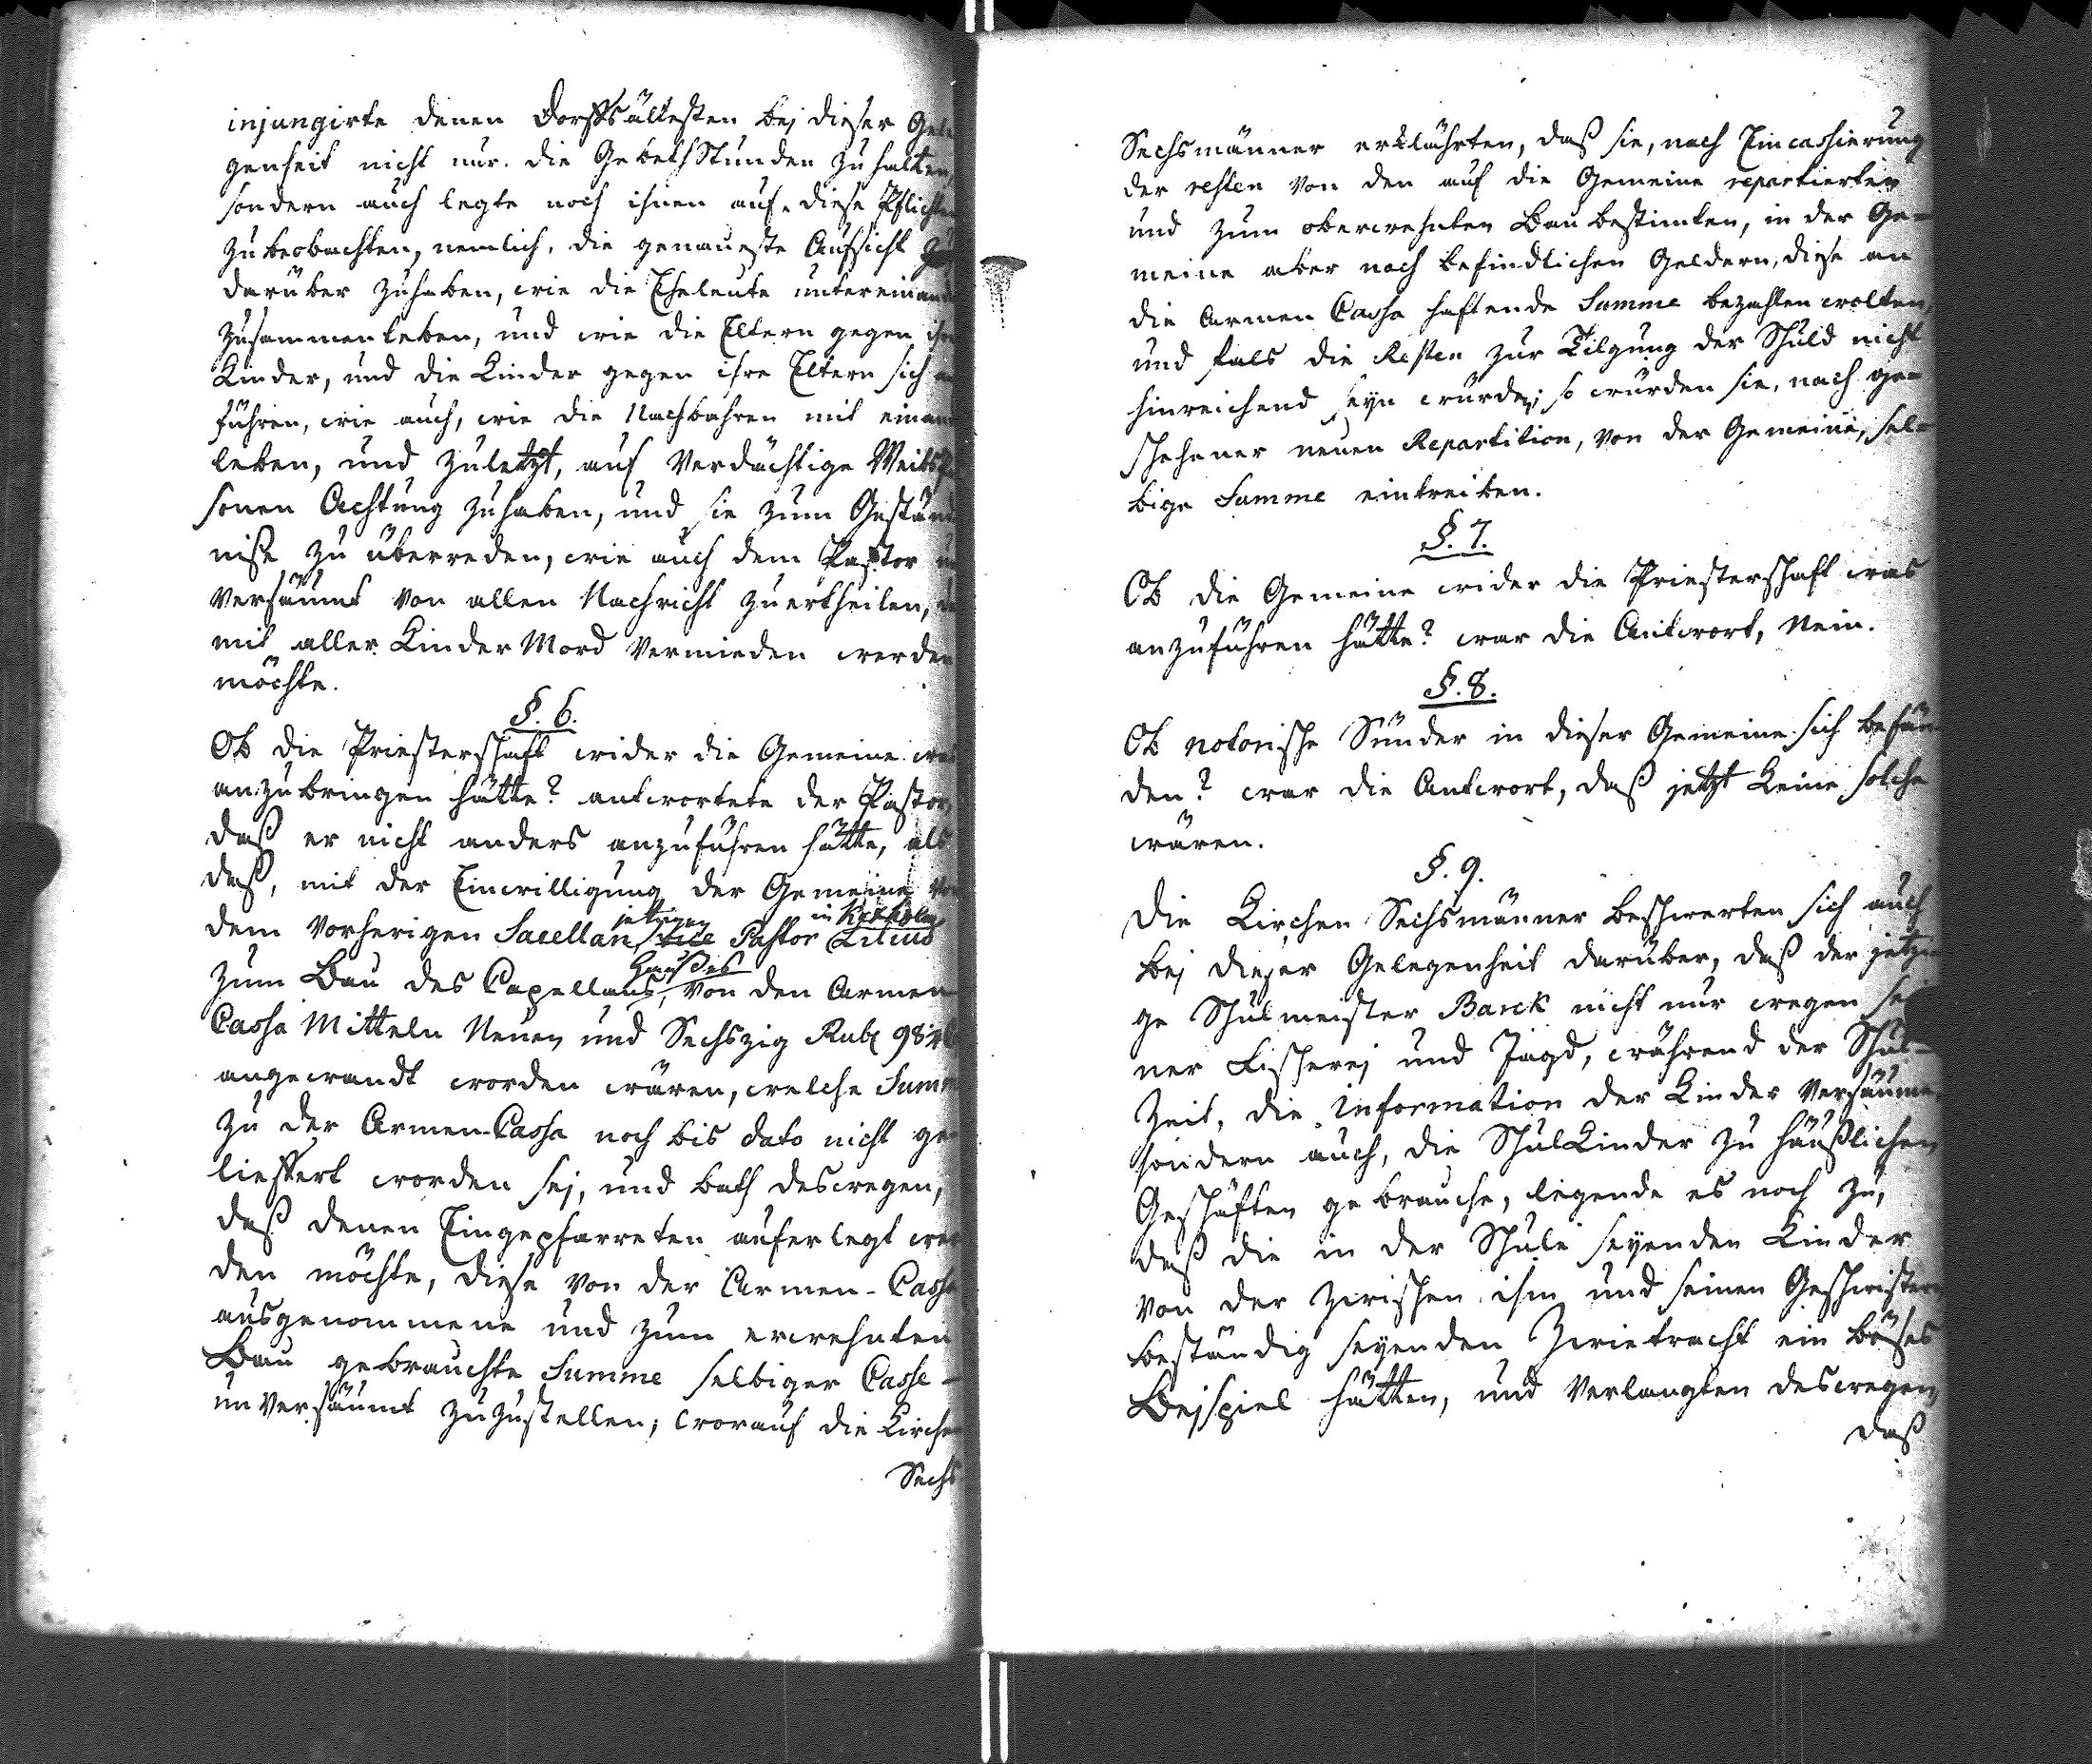 injungirte denen Dorffsältesten bej dieser Gele
genheit nicht nur die Gebeth Stunden zu halten,
sondern auch legte noch ihnen auf diese Pflichten
zu beobachten, nemlich, die genaueste Aufsicht
darüber zu haben, wie die Eheleute untereinande
zusammen leben, und wie die Eltern gegen ihre
Kinder, und die Kinder gegen ihre Eltern sich
führen, wie auch, wie die Nachbahren mit einan
leben, und zuletzt, auf verdächtige Weibsper
sonen Achtung zu haben, und sie zum Geständ
niße zu überreden, wie auch dem Pastor un
versäumt von allen Nachricht zu ertheilen, da
mit aller Kinder Mord vermieden werden
möchte.
§. 6.
Ob die Priesterschaft wider die Gemeine was
anzubringen hätte? antwortete der Pastor,
daß er nicht anders anzuführen hätte, als
daß, mit der Einwilligung der Gemeine von
jetzigen in
dem vorherigen Sacellan Vice Pastor Lilius
Haußes
zum Bau des Capellans, von den Armen
Cassa Mitteln Neun und Sechszig Rub 98
angewandt worden wären, welche Summ
zu der Armen-Cassa noch bis dato nicht ge-
lieffert worden sej, und bath deswegen,
daß denen Eingepfarreten auferlegt wer
den möchte, diese von der Armen-Cassa
ausgenommene und zum erwehnten
Bau gebrauchte Summe selbiger Casse-
unversäumt zuzustellen; worauf die Kirchen
Sechs
Sechsmänner erklährten, daß sie, nach Eincassierung
der resten von den auf die Gemeine repartierten
und zum oberwehnten Bau bestimten, in der Ge-
meine aber noch befindlichen Geldern, diese an
die Armen Cassa haftende Summe bezahlen wolten,
und fals die Resten zur Tilgung der Schuld nicht
hinreichend seyn würden; so würden sie, nach ge-
schehener neuen Repartition, von der Gemeine, sel-
bige Summe eintreiben.
§. 7.
Ob die Gemeine wider die Priesterschaft was
anzuführen hätte? war die Antwort, Nein.
§. 8.
Ob notorische Sünder in dieser Gemeine sich befün
den? war die Antwort, daß jetzt keine solche
wären.
§. 9.
Die Kirchen Sechsmänner beschwerten sich auch
bej dieser Gelegenheit darüber, daß der jetzi
ge Schulmeister Barck nicht nur wegen sei
ner Fischerej und Jagd, während der Schul-
Zeit, die Information der Kinder versäume,
sondern auch, die Schulkinder zu häußlichen
Geschäften gebrauche, legende es noch zu,
daß die in der Schule seyenden Kinder
von der zwischen ihm und seinen Geschwistern
beständig seyenden Zwietracht ein böses
Bejspiel hätten, und verlangten deswegen,
daß